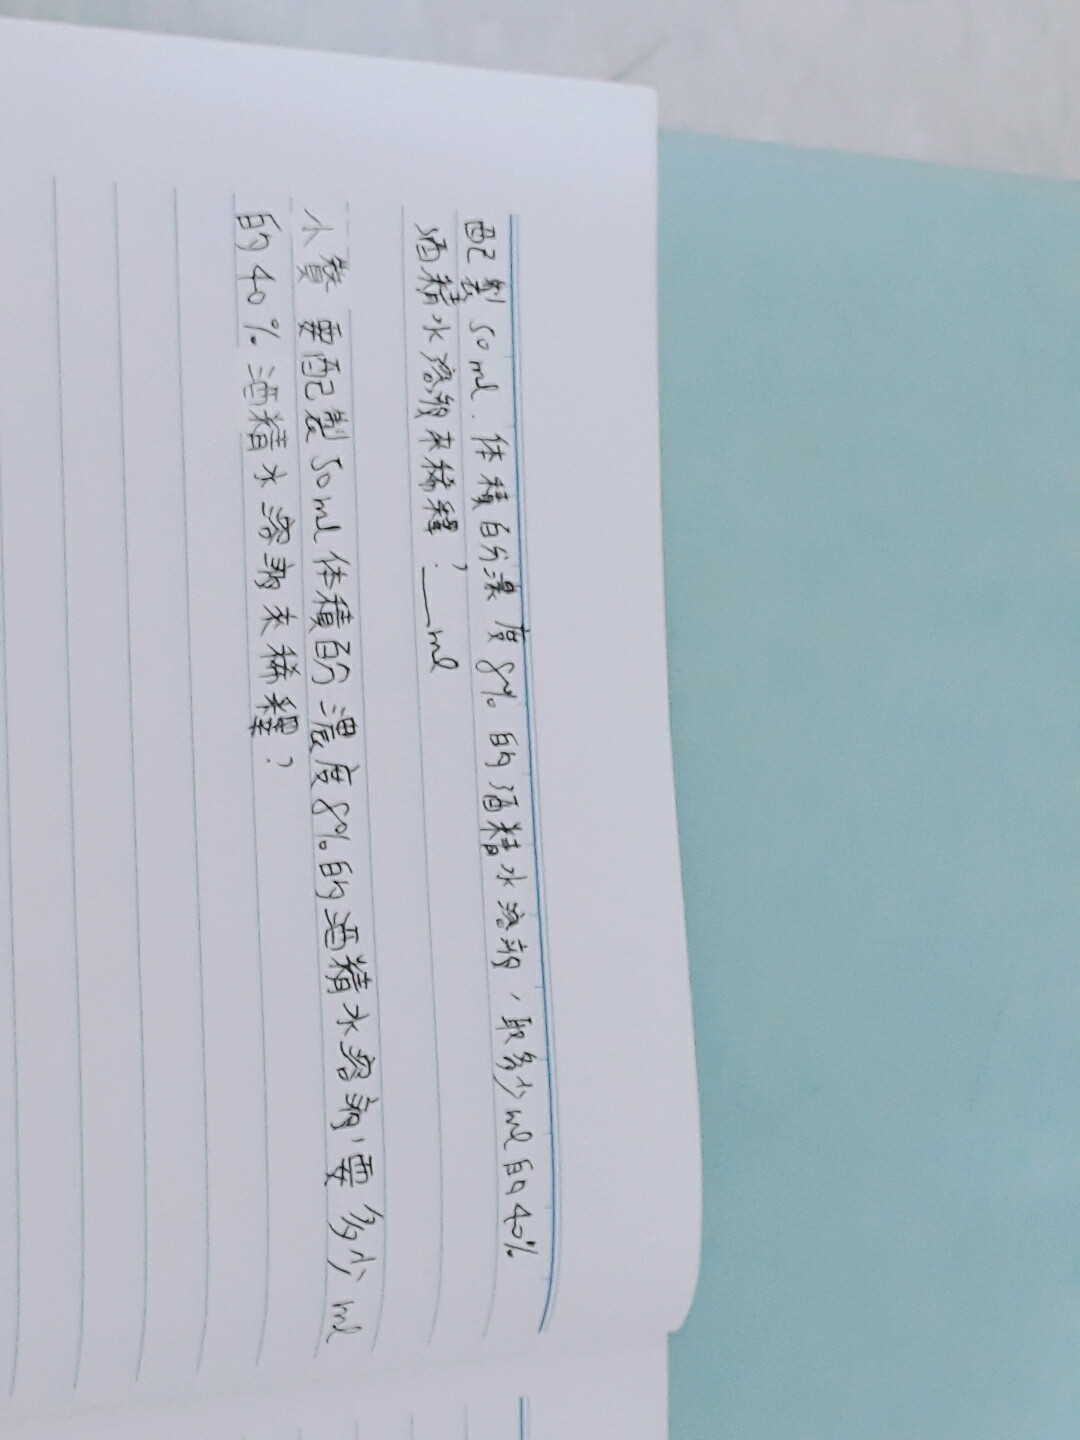 配製50ml.体積百分濃度8%的酒精水溶液，取多少ml的40%
酒精水溶液來稀釋？___ml
小賢 要配製50ml体積百分濃度8%的酒精水溶液，要多少ml
的40%酒精水溶液來稀釋？